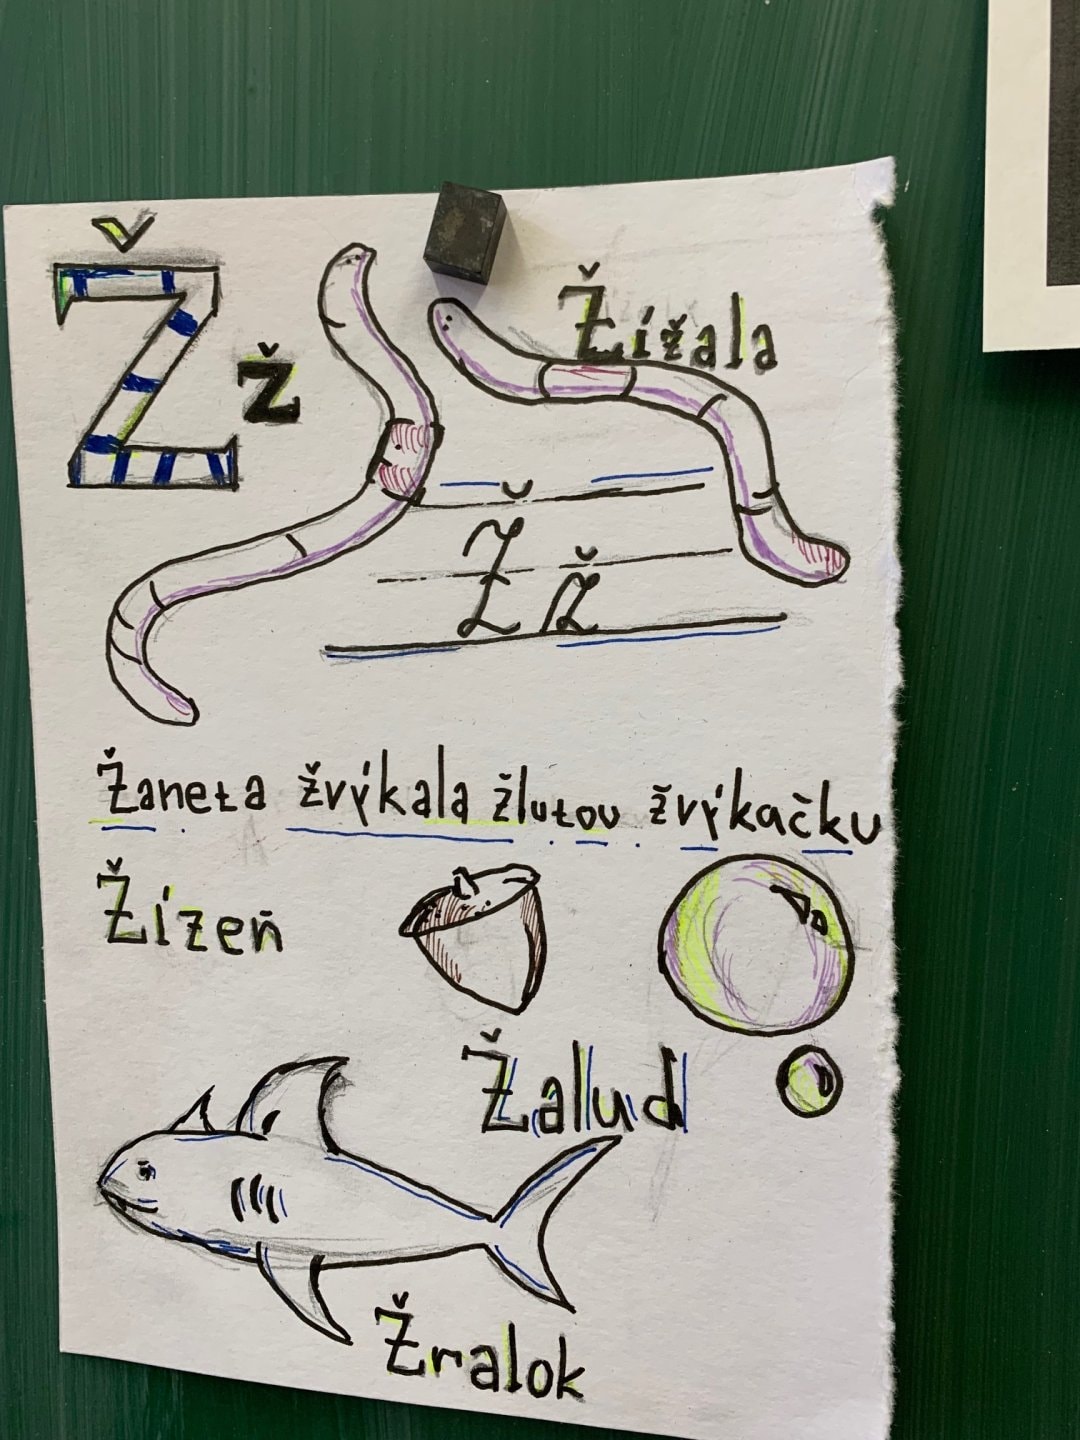 Ž ž
Žížala
Ž ž
Žaneta žvýkala žlutou žvýkačku
Žízeň
Žalud
Žralok